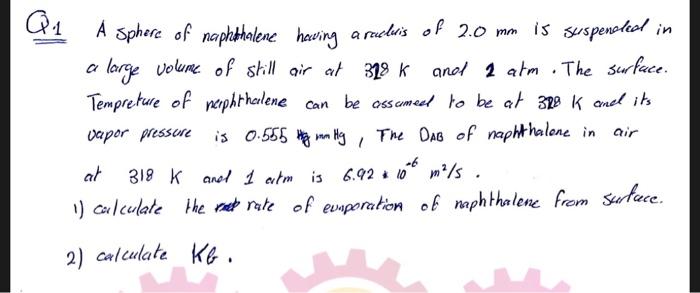 Q.1 A sphere of naphthalene having a raduis of 2.0 mm is suspended in
a large volume of still air at 318 K and 2 atm. The surface.
Tempreture of naphthalene can be assumed to be at 328 K and its
vapor pressure is 0.555 mm Hg, The DAB of naphthalene in air
at 318 K and 1 atm is 6.92 * 10^-6 m²/s.
1) calculate the rate of evaporation of naphthalene from surface.
2) calculate KG.